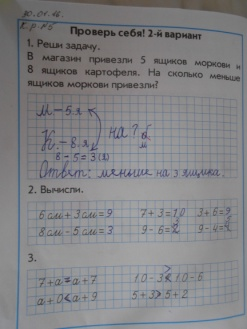 30.01.16
К.р №5
Проверь себя! 2-й вариант
1. Реши задачу.
В магазин привезли 5 ящиков моркови и
8 ящиков картофеля. На сколько меньше
ящиков моркови привезли?
М - 5 я
К. - 8 я. на ? б м
8 - 5 = 3 (я)
Ответ: меньше на 3 ящика.
2. Вычисли.
6 см + 3 см = 9 7 + 3 = 10 3 + 6 = 9
8 см - 5 см = 3 9 - 6 = 9 - 4 =
3.
7 + а = а + 7 10 - 3 > 10 - 6
а + 0 < а + 9 5 + 3 > 5 + 2